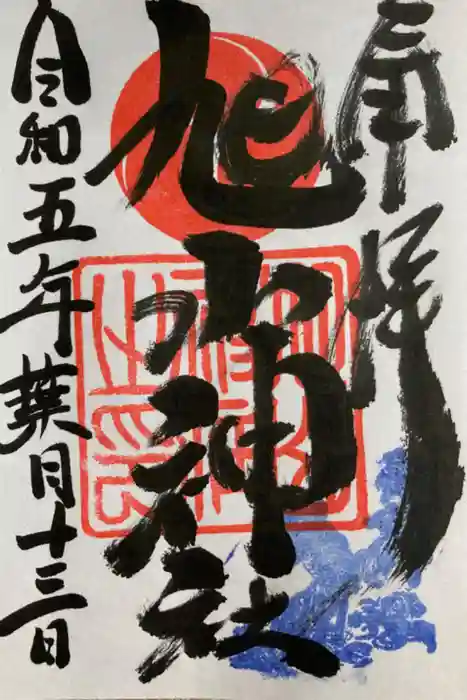 奉拝
旭水神社
令和五年葉月十三日